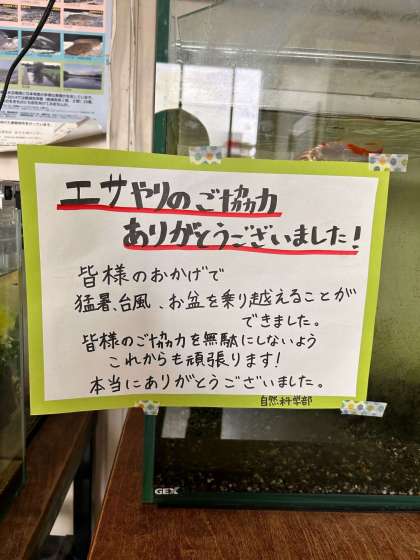 エサやりのご協力
ありがとうございました!
皆様のおかげで
猛暑、台風、お盆を乗り越えることが
できました。
皆様のご協力を無駄にしないよう
これからも頑張ります!
本当にありがとうございました。
自然科学部
GEX